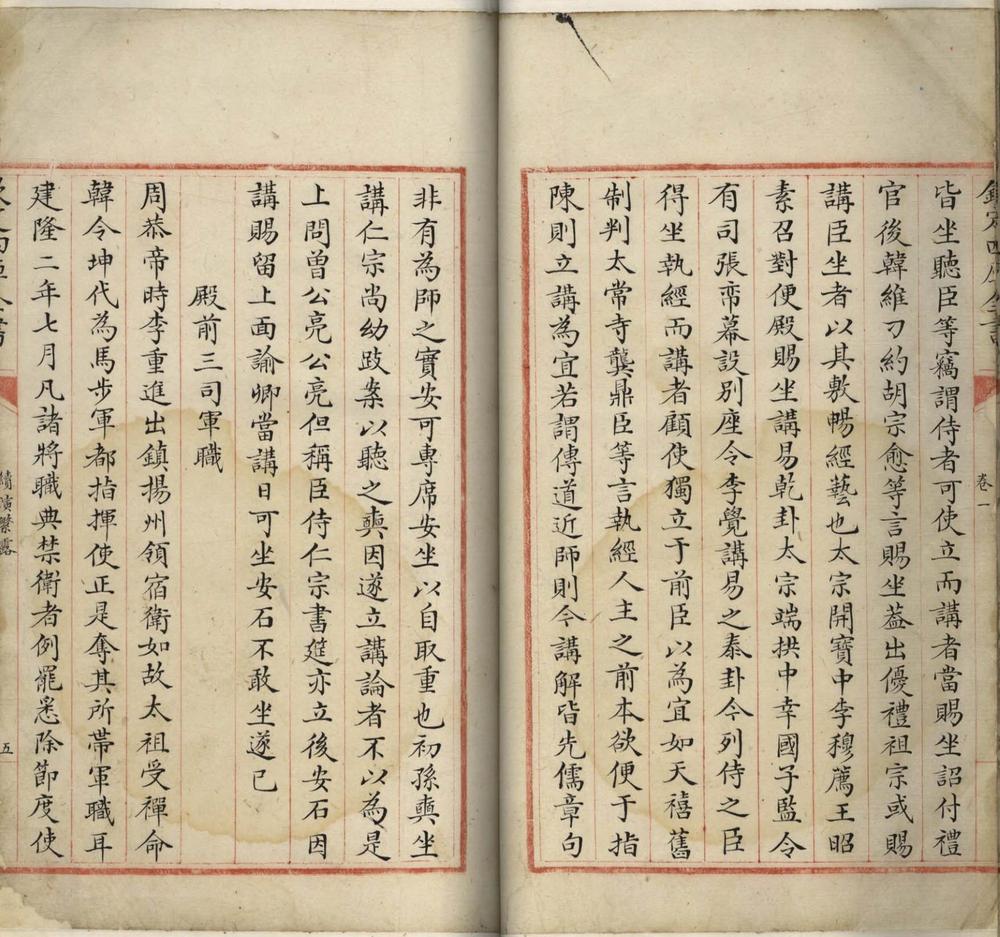 皆坐聽臣等竊謂侍者可使立而講者當賜坐詔付禮
官後韓維刁約胡宗愈等言賜坐葢出優禮祖宗或賜
講臣坐者以其敷暢經藝也太宗開寶中李穆薦王昭
素召對便殿賜坐講易乾卦太宗端拱中幸國子監令
有司張帟幕設別座令李覺講易之泰卦今列侍之臣
得坐執經而講者顧使獨立于前臣以為宜如天禧舊
制判太常寺龔鼎臣等言執經人主之前本欲便于指
陳則立講為宜若謂傳道近師則今講解皆先儒章句
卷一
非有為師之實安可專席安坐以自取重也初孫奭坐
講仁宗尚幼跂案以聽之奭因遂立講論者不以為是
上問曾公亮公亮但稱臣侍仁宗書筵亦立後安石因
講賜留上面諭卿當講日可坐安石不敢坐遂已
殿前三司軍職
周恭帝時李重進出鎮揚州領宿衛如故太祖受禪命
韓令坤代為馬步軍都指揮使正是奪其所帶軍職耳
建隆二年七月凡諸將職典禁衛者例罷悉除節度使
續演繁露
五